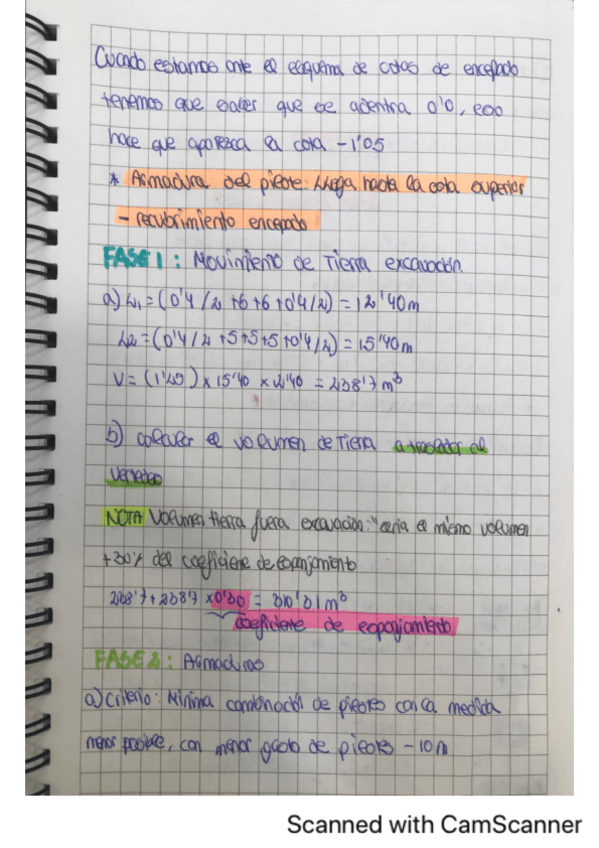 Cuando estamos ante el esquema de cotas de encepado
tenemos que saber que se adentra 0'0, eso
hace que aparezca la cota -1'05
* Armadura del pilote: Llega hasta la cota superior
- recubrimiento encepado
FASE 1: Movimiento de Tierra excavación.
a) L1 = (0'4/2 +6+6+0'4/2) = 12'40m
L2 = (0'4/2 +5+5+5+0'4/2) = 15'40m
V = (1'25) x 15'40 x 2'40 = 238'7 m³
b) calcular el volumen de Tierra a trasladar al
vertedero
NOTA Volumen tierra fuera excavación: "sería el mismo volumen
+30% del coeficiene de esponjamiento
238'7 + 238'7 x 0'30 = 310'31 m³
coeficiente de esponjamiento
FASE 2: Armaduras
a) Criterio: Mínima combinación de pilotes con la medida
menor posible, con menor gasto de pilotes - 10m
Scanned with CamScanner